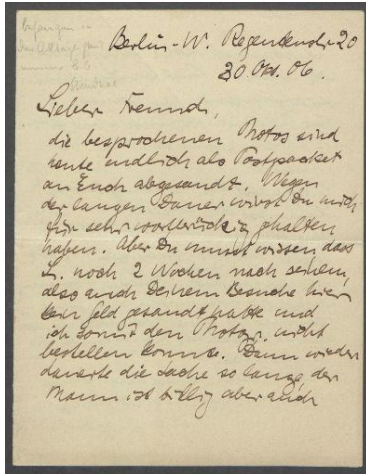 Berlin-W. Regentenstr 20
30 Okt. 06.
Lieber Freund,
die besprochenen Photos sind
heute endlich als Postpacket
an Euch abgesandt. Wegen
der langen Dauer wirst Du mich
für sehr wortbrüchig gehalten
haben. Aber Du musst wissen dass
L. noch 2 Wochen nach seinem,
also auch Deinem Besuche hier
kein Geld gesandt hatte und
ich somit den Photogr. nicht
bestellen konnte. Dann wieder
dauerte die Sache so lange, der
Mann ist billig aber auch